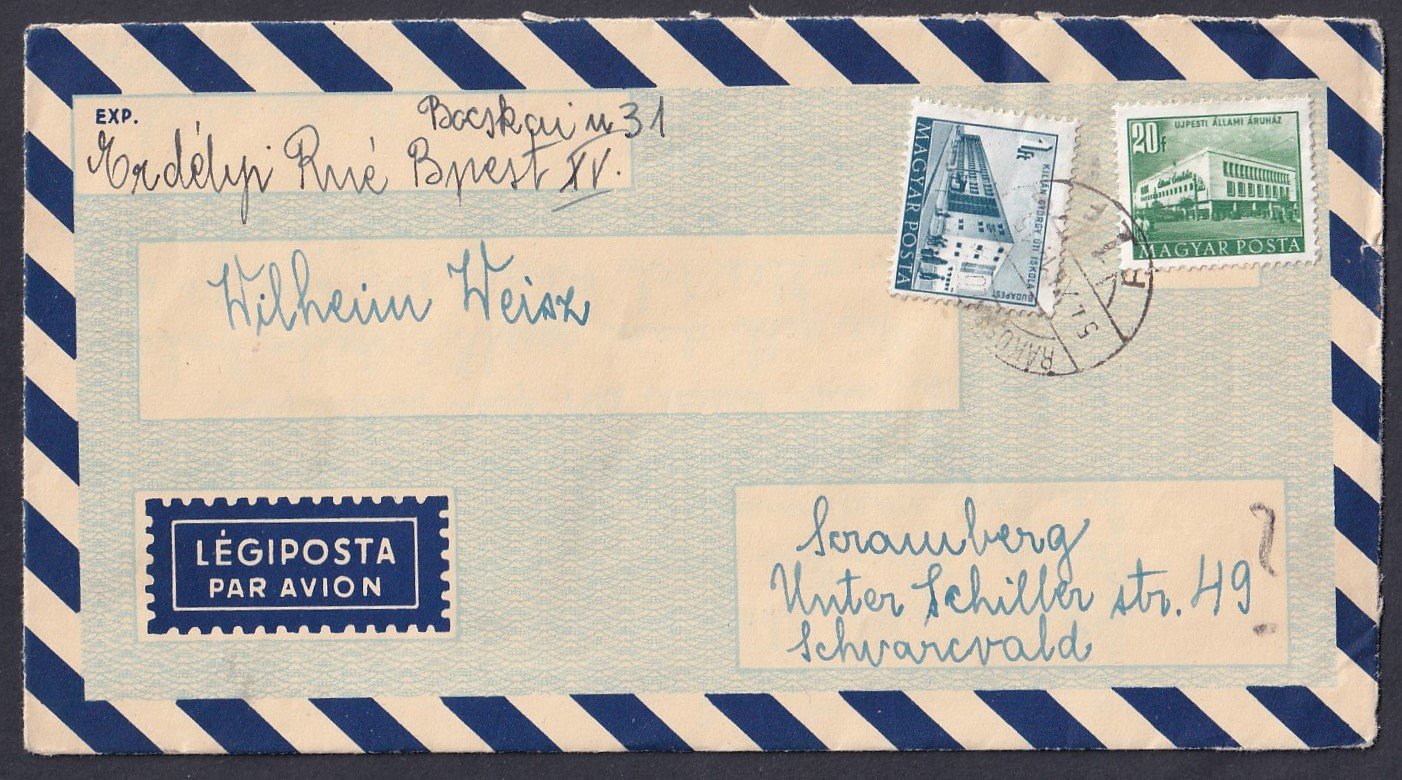 EXP.
Bocskai u 31
Erdélyi Rné Bpest XV.
Wilheim Weisz
1 Ft
KILIÁN GYÖRGY ÚTI ISKOLA BUDAPEST
MAGYAR POSTA
20f
UJPESTI ÁLLAMI ÁRUHÁZ
MAGYAR POSTA
LÉGIPOSTA
PAR AVION
Scramberg
Unter Schiller str. 49
Schvarcvald
?